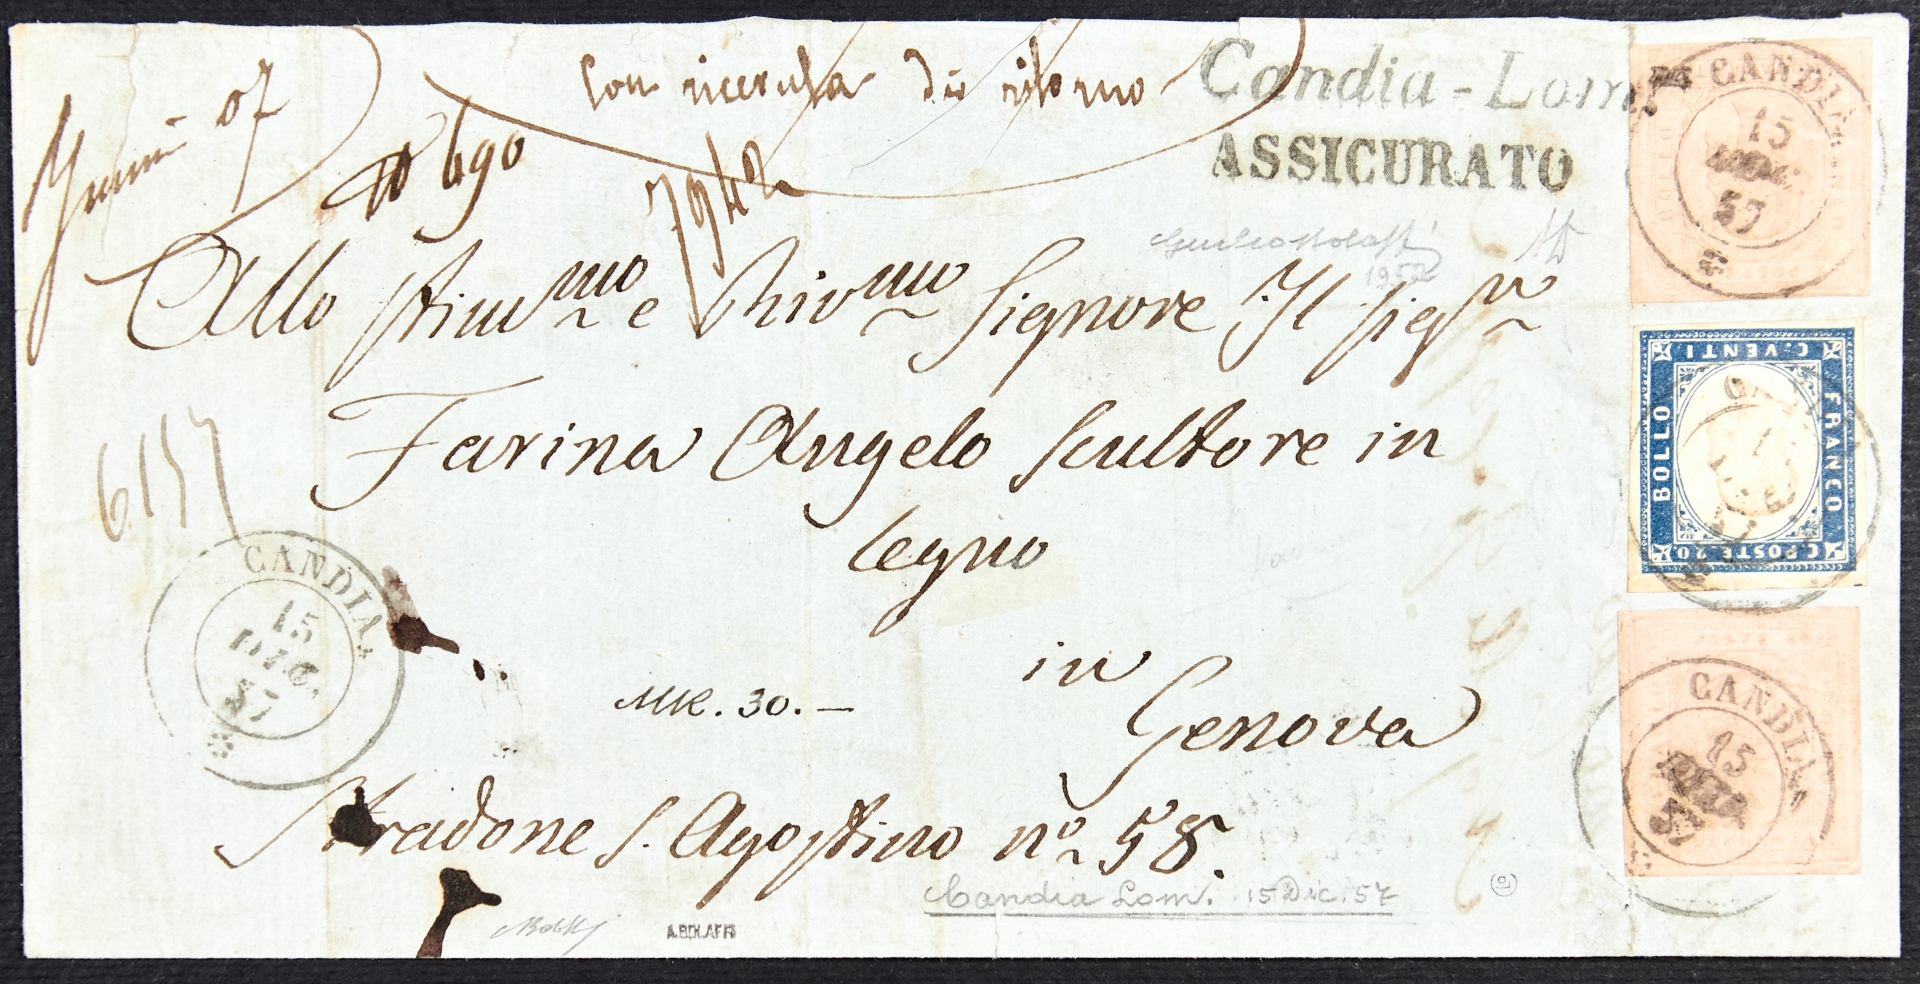 con ricevuta di ritorno
Candia - Lom.
ASSICURATO
690
7942
Allo stim.mo e Chiar.mo Signore Il Sig.r
Farina Angelo Scultore in
legno
in
Genova
Stradone S. Agostino n.o 58.
CANDIA
15
DIC.
57
MK. 30.—
Candia Lom. 15 Dic. 57
A.BOLAFFI
1952
CANDIA
15
57
C. VENTI.
BOLLO
FRANCO
C. POSTE 20
CANDIA
15
57